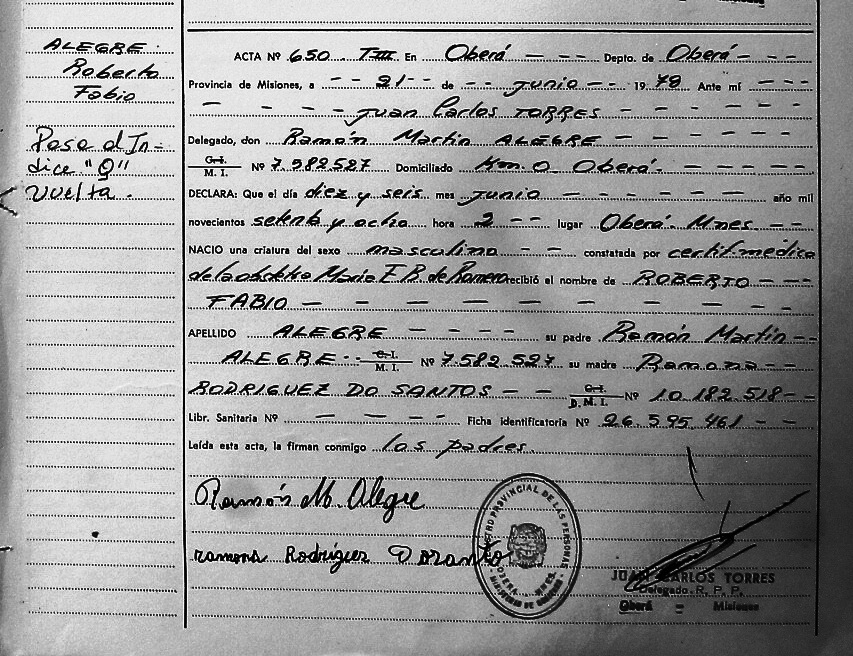 ALEGRE
Roberto
Fabio
Pasa al In-
dice "Q"
vuelta.
ACTA Nº 650 TIII En Oberá Depto. de Oberá
Provincia de Misiones, a 21 de junio 1978 Ante mí
Juan Carlos TORRES
Delegado, don Ramón Martín ALEGRE
C.I. M.I. Nº 7.582.527 Domiciliado Km. 0. Oberá.
DECLARA: Que el día diez y seis mes junio año mil
novecientos setenta y ocho hora 2 lugar Oberá. Mnes
NACIO una criatura del sexo masculino constatada por certif. médico
de la obstetra Maria E B. de Romero recibió el nombre de ROBERTO
FABIO
APELLIDO ALEGRE su padre Ramón Martín
ALEGRE C.I. M.I. Nº 7.582.527 su madre Ramona
RODRIGUEZ DO SANTOS C.I. D.M.I. Nº 10.182.518
Libr. Sanitaria Nº Ficha identificatoria Nº 26.595.461
Leída esta acta, la firman conmigo los padres.
Ramón M. Alegre
ramona Rodriguez
PROVINCIAL DE LAS PERSONAS
JUAN CARLOS TORRES
Delegado R. P. P.
Oberá - Misiones